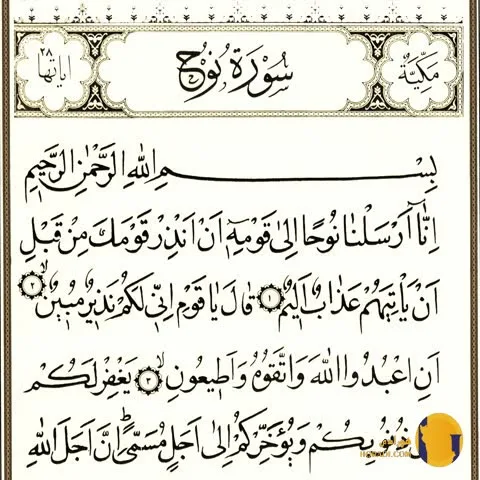 مَكِّيَّةٌ سُورَةُ نُوحٍ اٰيَاتُهَا ٢٨
بِسْمِ اللهِ الرَّحْمٰنِ الرَّحِيمِ
اِنَّٓا اَرْسَلْنَا نُوحًا اِلٰى قَوْمِهِٓ اَنْ اَنْذِرْ قَوْمَكَ مِنْ قَبْلِ
اَنْ يَأْتِيَهُمْ عَذَابٌ اَلِيمٌ ۝١ قَالَ يَا قَوْمِ اِنِّي لَكُمْ نَذِيرٌ مُبِينٌ ۝٢
اَنِ اعْبُدُوا اللهَ وَاتَّقُوهُ وَاَطِيعُونِ ۝٣ يَغْفِرْ لَكُمْ
ذُنُوبِكُمْ وَيُؤَخِّرْكُمْ اِلٰٓى اَجَلٍ مُسَمًّى اِنَّ اَجَلَ اللهِ